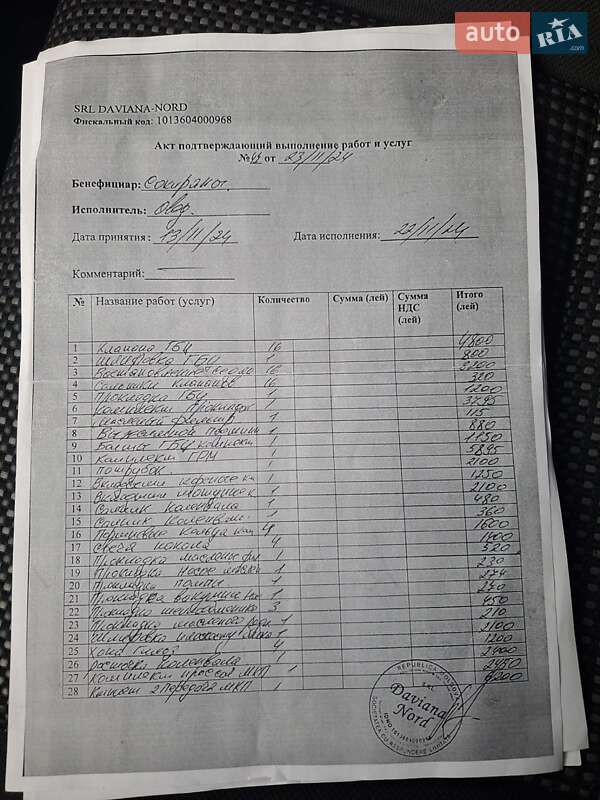 auto RIA .com
SRL DAVIANA-NORD
Фискальный код: 1013604000968
Акт подтверждающий выполнение работ и услуг
№ от 23/11/24
Бенефициар:
Исполнитель:
Дата принятия: 13/11/24 Дата исполнения: 22/11/24
Комментарий:
№ Название работ (услуг) Количество Сумма (лей) Сумма НДС (лей) Итого (лей)
1 Клапана ГБЦ 16 4800
2 Шлифовка ГБЦ 1 800
3 16 3200
4 Сальники клапанов 16 320
5 Прокладка ГБЦ 1 1200
6 Комплект прокладок 1 3795
7 Масляный фильтр 1 115
8 1 880
9 Болты ГБЦ комплект 1 1150
10 Комплект ГРМ 1 5895
11 Патрубок 1 2100
12 Вкладыши коренные 1 1250
13 Вкладыши 1 2100
14 Сальник коленвала 1 480
15 Сальник коленвал. 1 360
16 кольца 4 1600
17 Свеча накала 4 1400
18 Прокладка маслян. 1 320
19 Прокладка насос 1 230
20 Прокладка помпы 1 274
21 Прокладка вакуумн 1 270
22 Прокладка теплообменника 3 450
23 Прокладка масляного 1 210
24 Шлифовка 1 2100
25 Хона гильз 4 1200
26 коленвала 1 2400
27 Комплект МКП 1 2480
28 2 передача МКП 1 6200
REPUBLICA MOLDOVA
SRL
Daviana
Nord
IDNO 1013604000968
SOCIETATEA CU RĂSPUNDERE LIMITATĂ